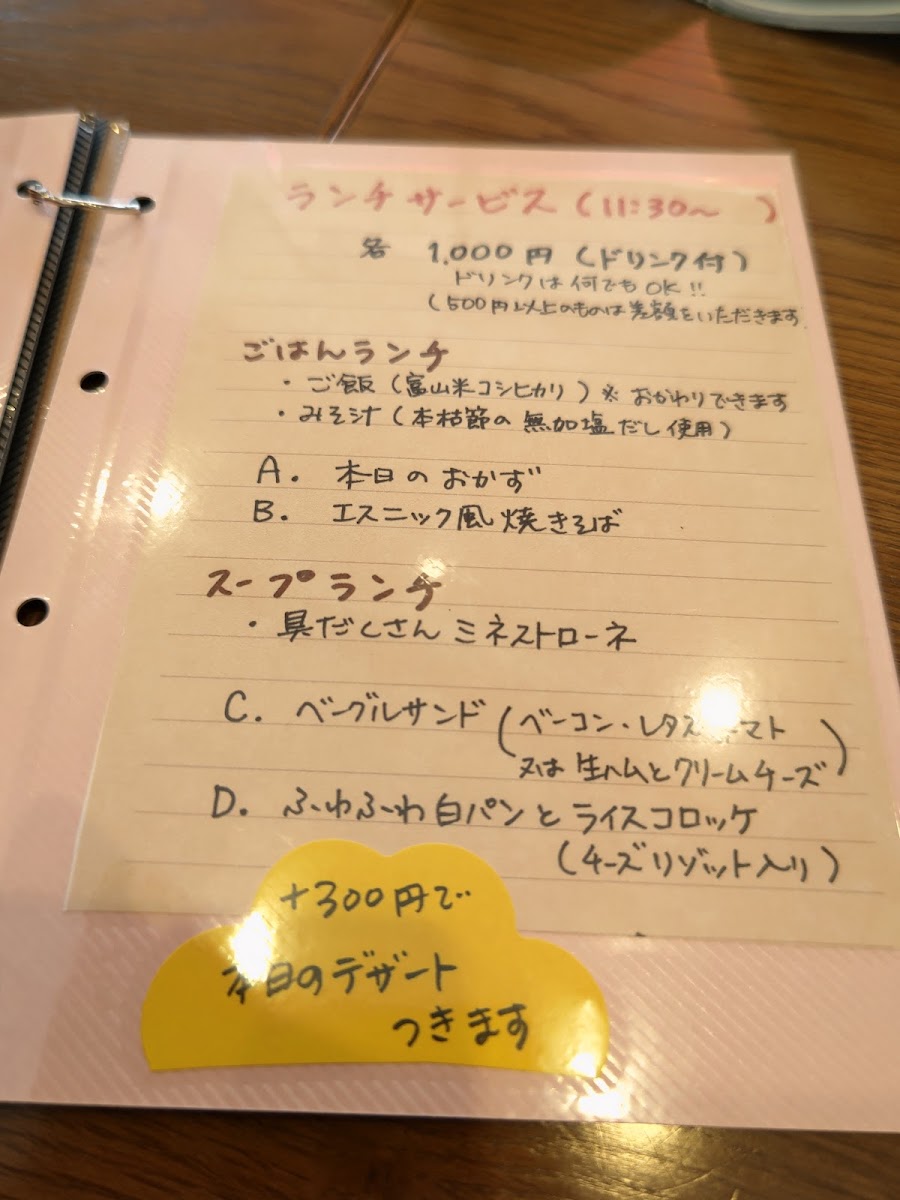 ランチサービス(11:30〜 )
各 1,000円(ドリンク付)
ドリンクは何でもOK!!
(500円以上のものは差額をいただきます
ごはんランチ
・ご飯(富山米コシヒカリ)※おかわりできます
・みそ汁(本枯節の無加塩だし使用)
A. 本日のおかず
B. エスニック風焼きそば
スープランチ
・具だくさんミネストローネ
C. ベーグルサンド(ベーコン・レタス トマト
又は生ハムとクリームチーズ)
D. ふわふわ白パンとライスコロッケ
(チーズリゾット入り)
+300円で
本日のデザート
つきます